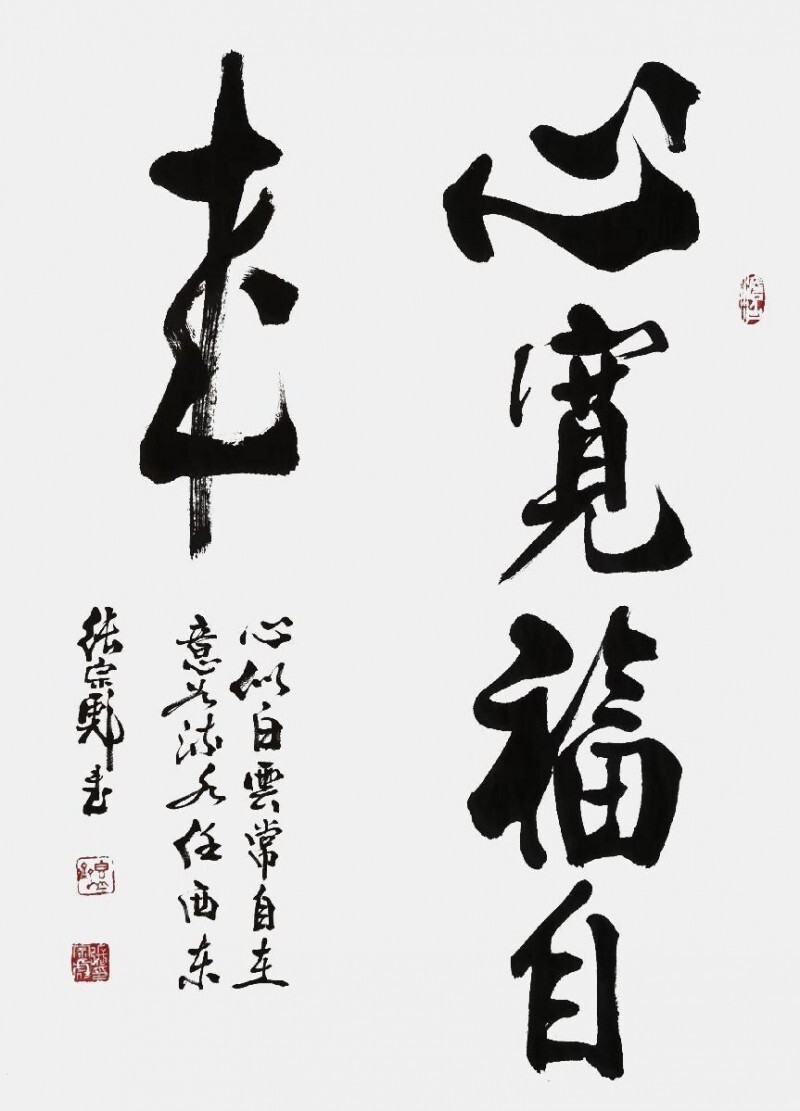 心寬福自
来
心似白雲常自在
意如流水任西东
张宗彪书